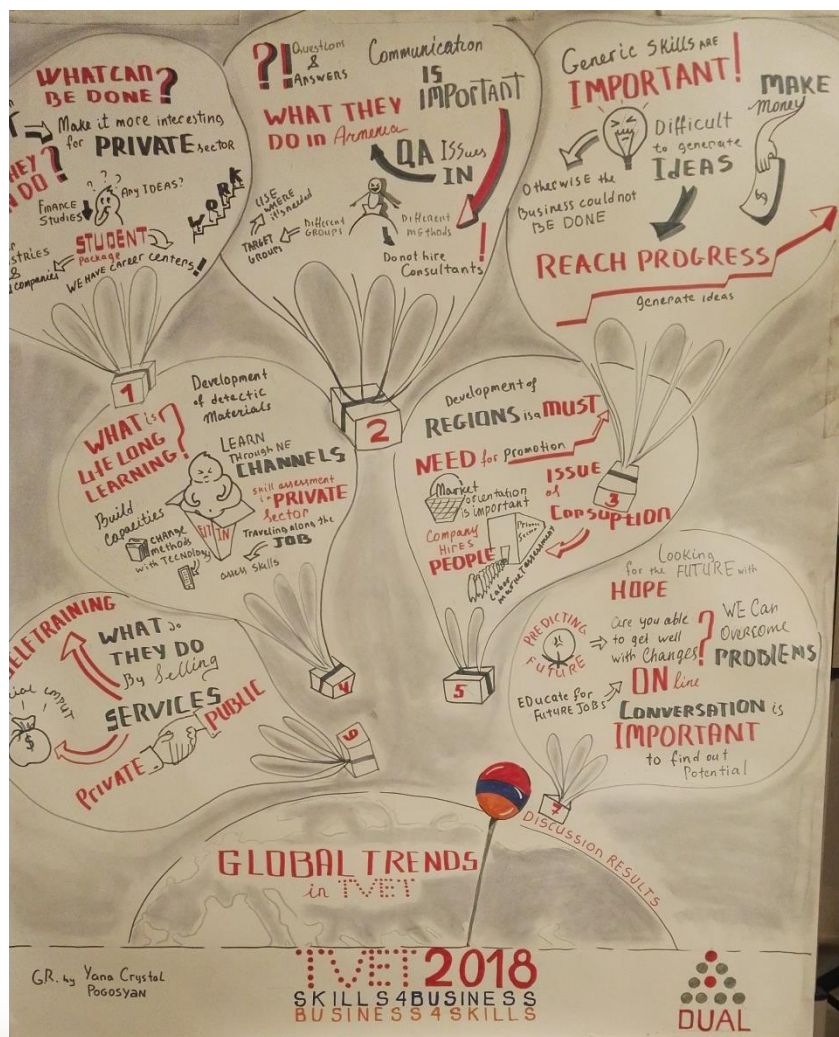 WHAT CAN
BE DONE?
Make it more interesting
for PRIVATE sector
DO?
? ? ?
Any IDEAS?
FINANCE
Studies
WORK
STUDENT
Package
companies
WE HAVE CAREER CENTERS!
1
?! Questions
&
Answers
Communication
IS
IMPORTANT
WHAT THEY
DO in Armenia
QA ISSues
IN
USE
WHERE
it's needed
TARGET
GROUPS
Different
GROUPS
Different
methods
Do not hire
Consultants!
2
Generic Skills are
IMPORTANT!
MAKE
Money
Difficult
to generate
IDEAS
Otherwise the
Business could not
BE DONE
REACH PROGRESS
generate ideas
3
Development
of detectic
Materials
WHAT is
LIFE LONG
LEARNING?
LEARN
Through NE
CHANNELS
Skill assessment
in PRIVATE
Sector
Build
Capacities
FIT IN
CHANGE
methods
with TECNology
Traveling along the
JOB
assess skills
4
Development of
REGIONS is a MUST
NEED for promotion
ISSUE
of
Consuption
Market
orientation
is important
Company
HIRES
PEOPLE
Private
Sector
Labor
Market assessment
5
SELFTRAINING
WHAT do
THEY DO
By Selling
SERVICES
$
Private
PUBLIC
6
Looking
for the FUTURE with
HOPE
PREDICTING
FUTURE
are you able
to get well
with Changes?
WE Can
OVERCOME
PROBLEMS
EDucate for
FUTURE JOBS
ON line
CONVERSATION is
IMPORTANT
to find out
Potential
7
DISCUSSION RESULTS
GLOBAL TRENDS
in TVET
GR. by Yana Crystal
POGOSYAN
TVET 2018
SKILLS4BUSINESS
BUSINESS4SKILLS
DUAL